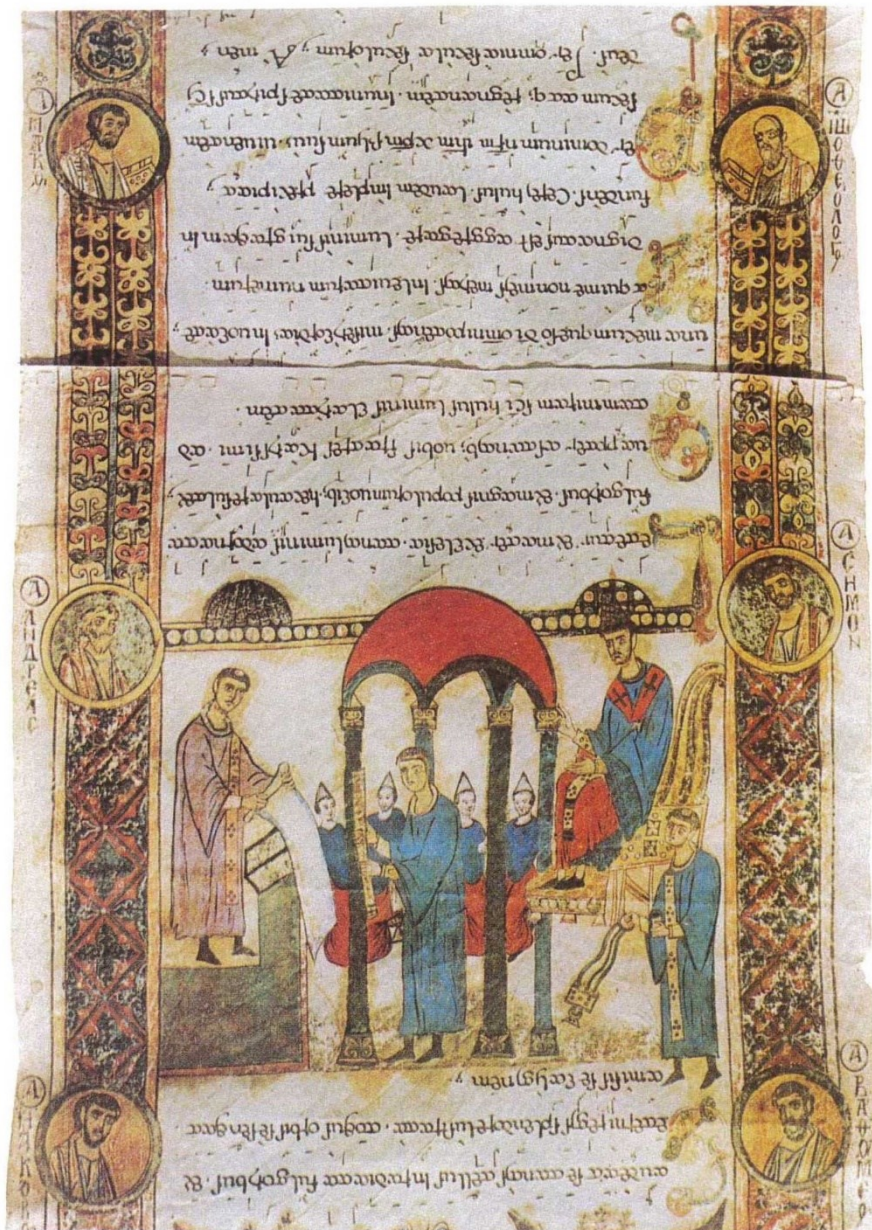 audeat se tantis tellus inradiata fulgoribus. &
eterni regis splendore lustrata. totius orbis se sentiat
amisisse caliginem.
etetur & mater ecclesia. tanti luminis adornata
fulgoribus. & magnis populorum uocib; hec aula resultet.
ua propter astantib; uobis fratres karissimi ad
tam miram sci huius luminis claritatem.
una mecum queso di omnipotentis misericordiam inuocate.
qui me non meis meritis in leuitarum numerum
dignatus est aggregare. luminis sui gratiam in
fundens. Cerei huius laudem implere precipiat.
er dominum nrm ihm xpm filium suum. uiuentem
secum atq; regnantem. in unitate spiritus sci
deus. Per omnia secula seculorum. Amen
Α ΑΝΔΡΕΑC
Α CΗΜΟΝ
Α ΙΑΚΟΒ
Α ΒΑΘΟΜΕΟ